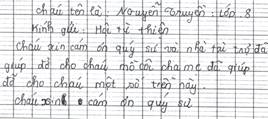 cháu tên là: Nguyễn Truyền: lớp. 8
Kính gửi: Hội từ thiện
Cháu xin cám ơn quý sư và nhà tài trợ đã
giúp đỡ cho cháu mồ côi cha mẹ đã giúp
đỡ cho cháu một số tiền này.
cháu xin cám ơn quý sư